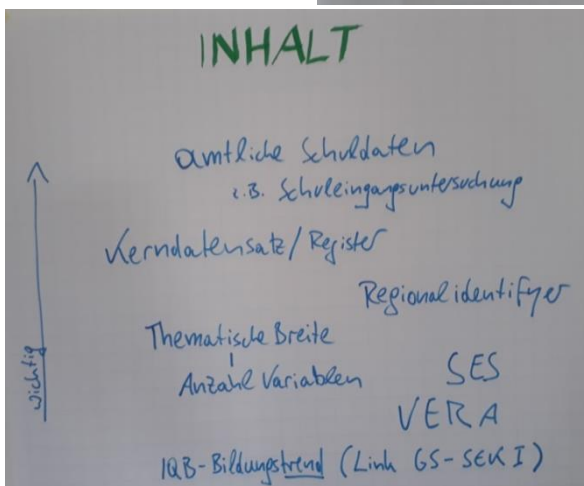 INHALT
amtliche Schuldaten
z.B. Schuleingangsuntersuchung
Kerndatensatz/Register
Regionalidentifyer
Thematische Breite
Anzahl Variablen
SES
VERA
IQB-Bildungstrend (Link GS-SEK I)
wichtig